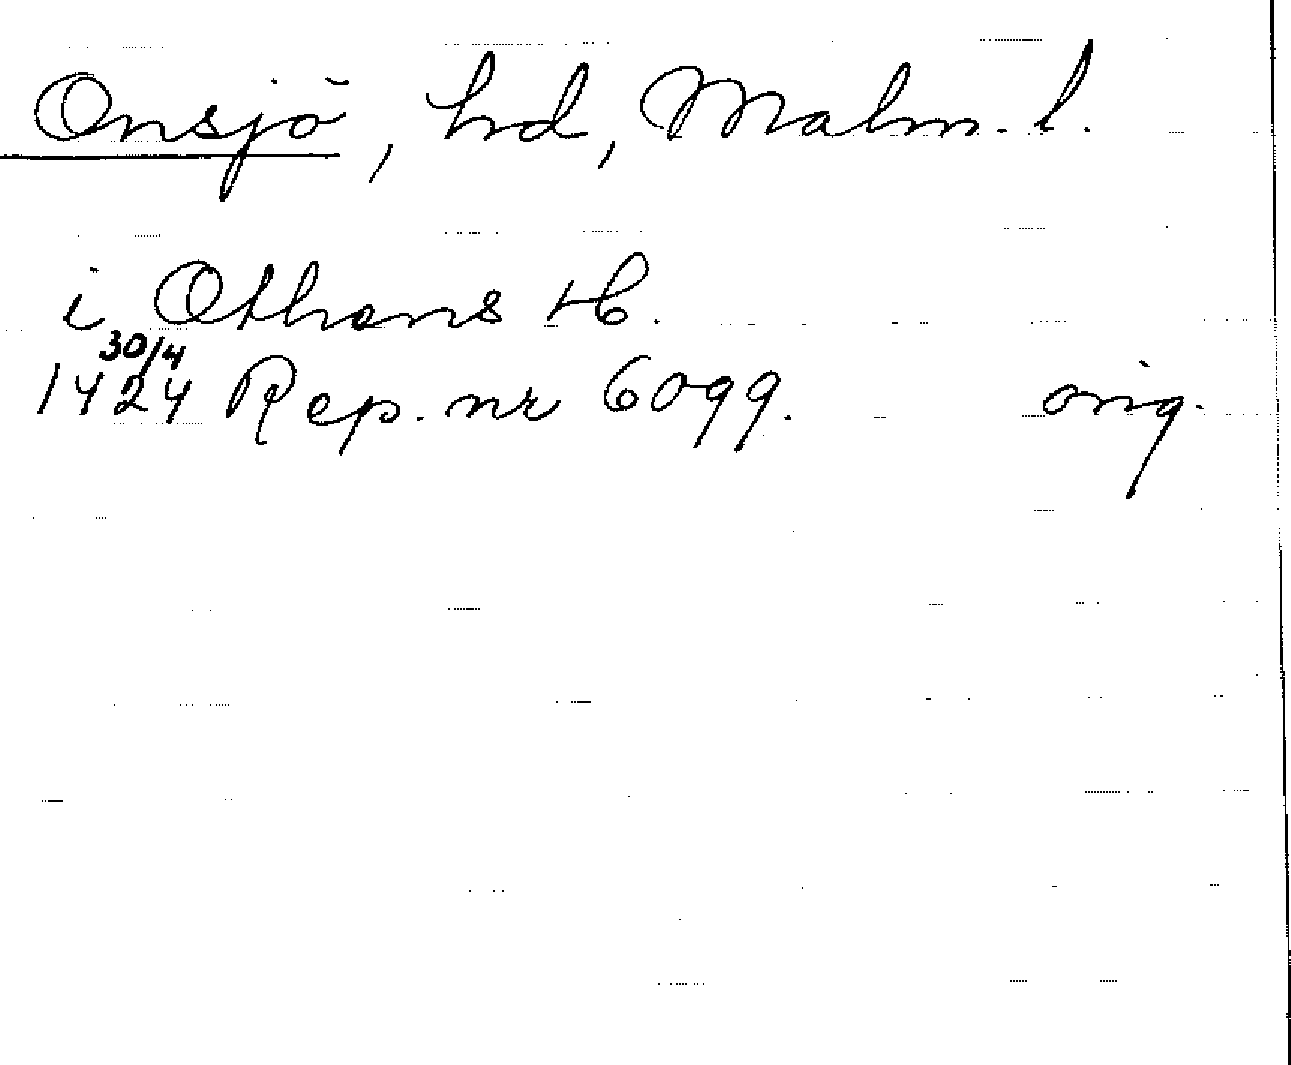 Onsjö, hd, Malm. l.
i Othens H.
30/4
1424 Rep. nr 6099. orig.